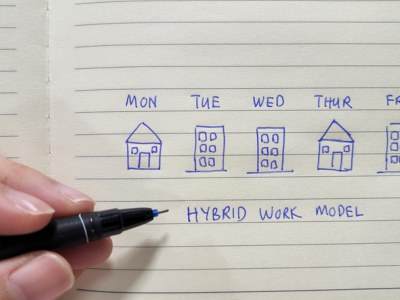 MON TUE WED THUR FR
HYBRID WORK MODEL